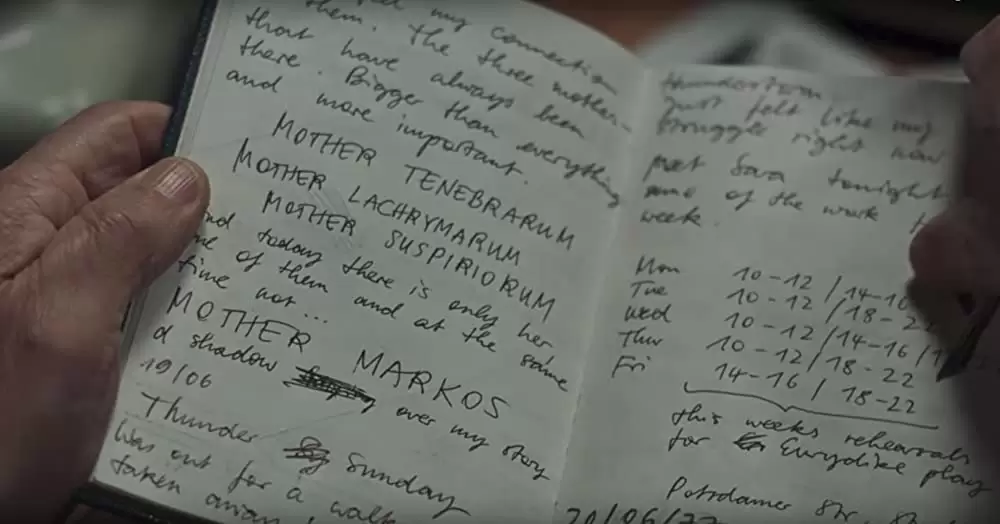 my connection
them. The three mother-
that have always been
there. Bigger than everything
and more important.
MOTHER TENEBRARUM
MOTHER LACHRYMARUM
MOTHER SUSPIRIORUM
And today there is only her
one of them and at the same
time not...
MOTHER MARKOS
a shadow over my story
19/06
Thunder Sunday
Was out for a walk
taken
thunderstorm
Just felt like my
struggle right now
met Sara tonight
some of the work
week.
Mon 10-12 / 14-16
Tue 10-12 / 18-22
Wed 10-12 / 14-16 /
Thur 10-12 / 18-22
Fri 14-16 / 18-22
this weeks rehearsals
for Eurydike play
Potsdamer Str
20/06/77